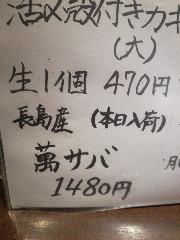 活〆殻付きカキ
(大)
生1個 470円
長島産 (本日入荷)
萬サバ
1480円